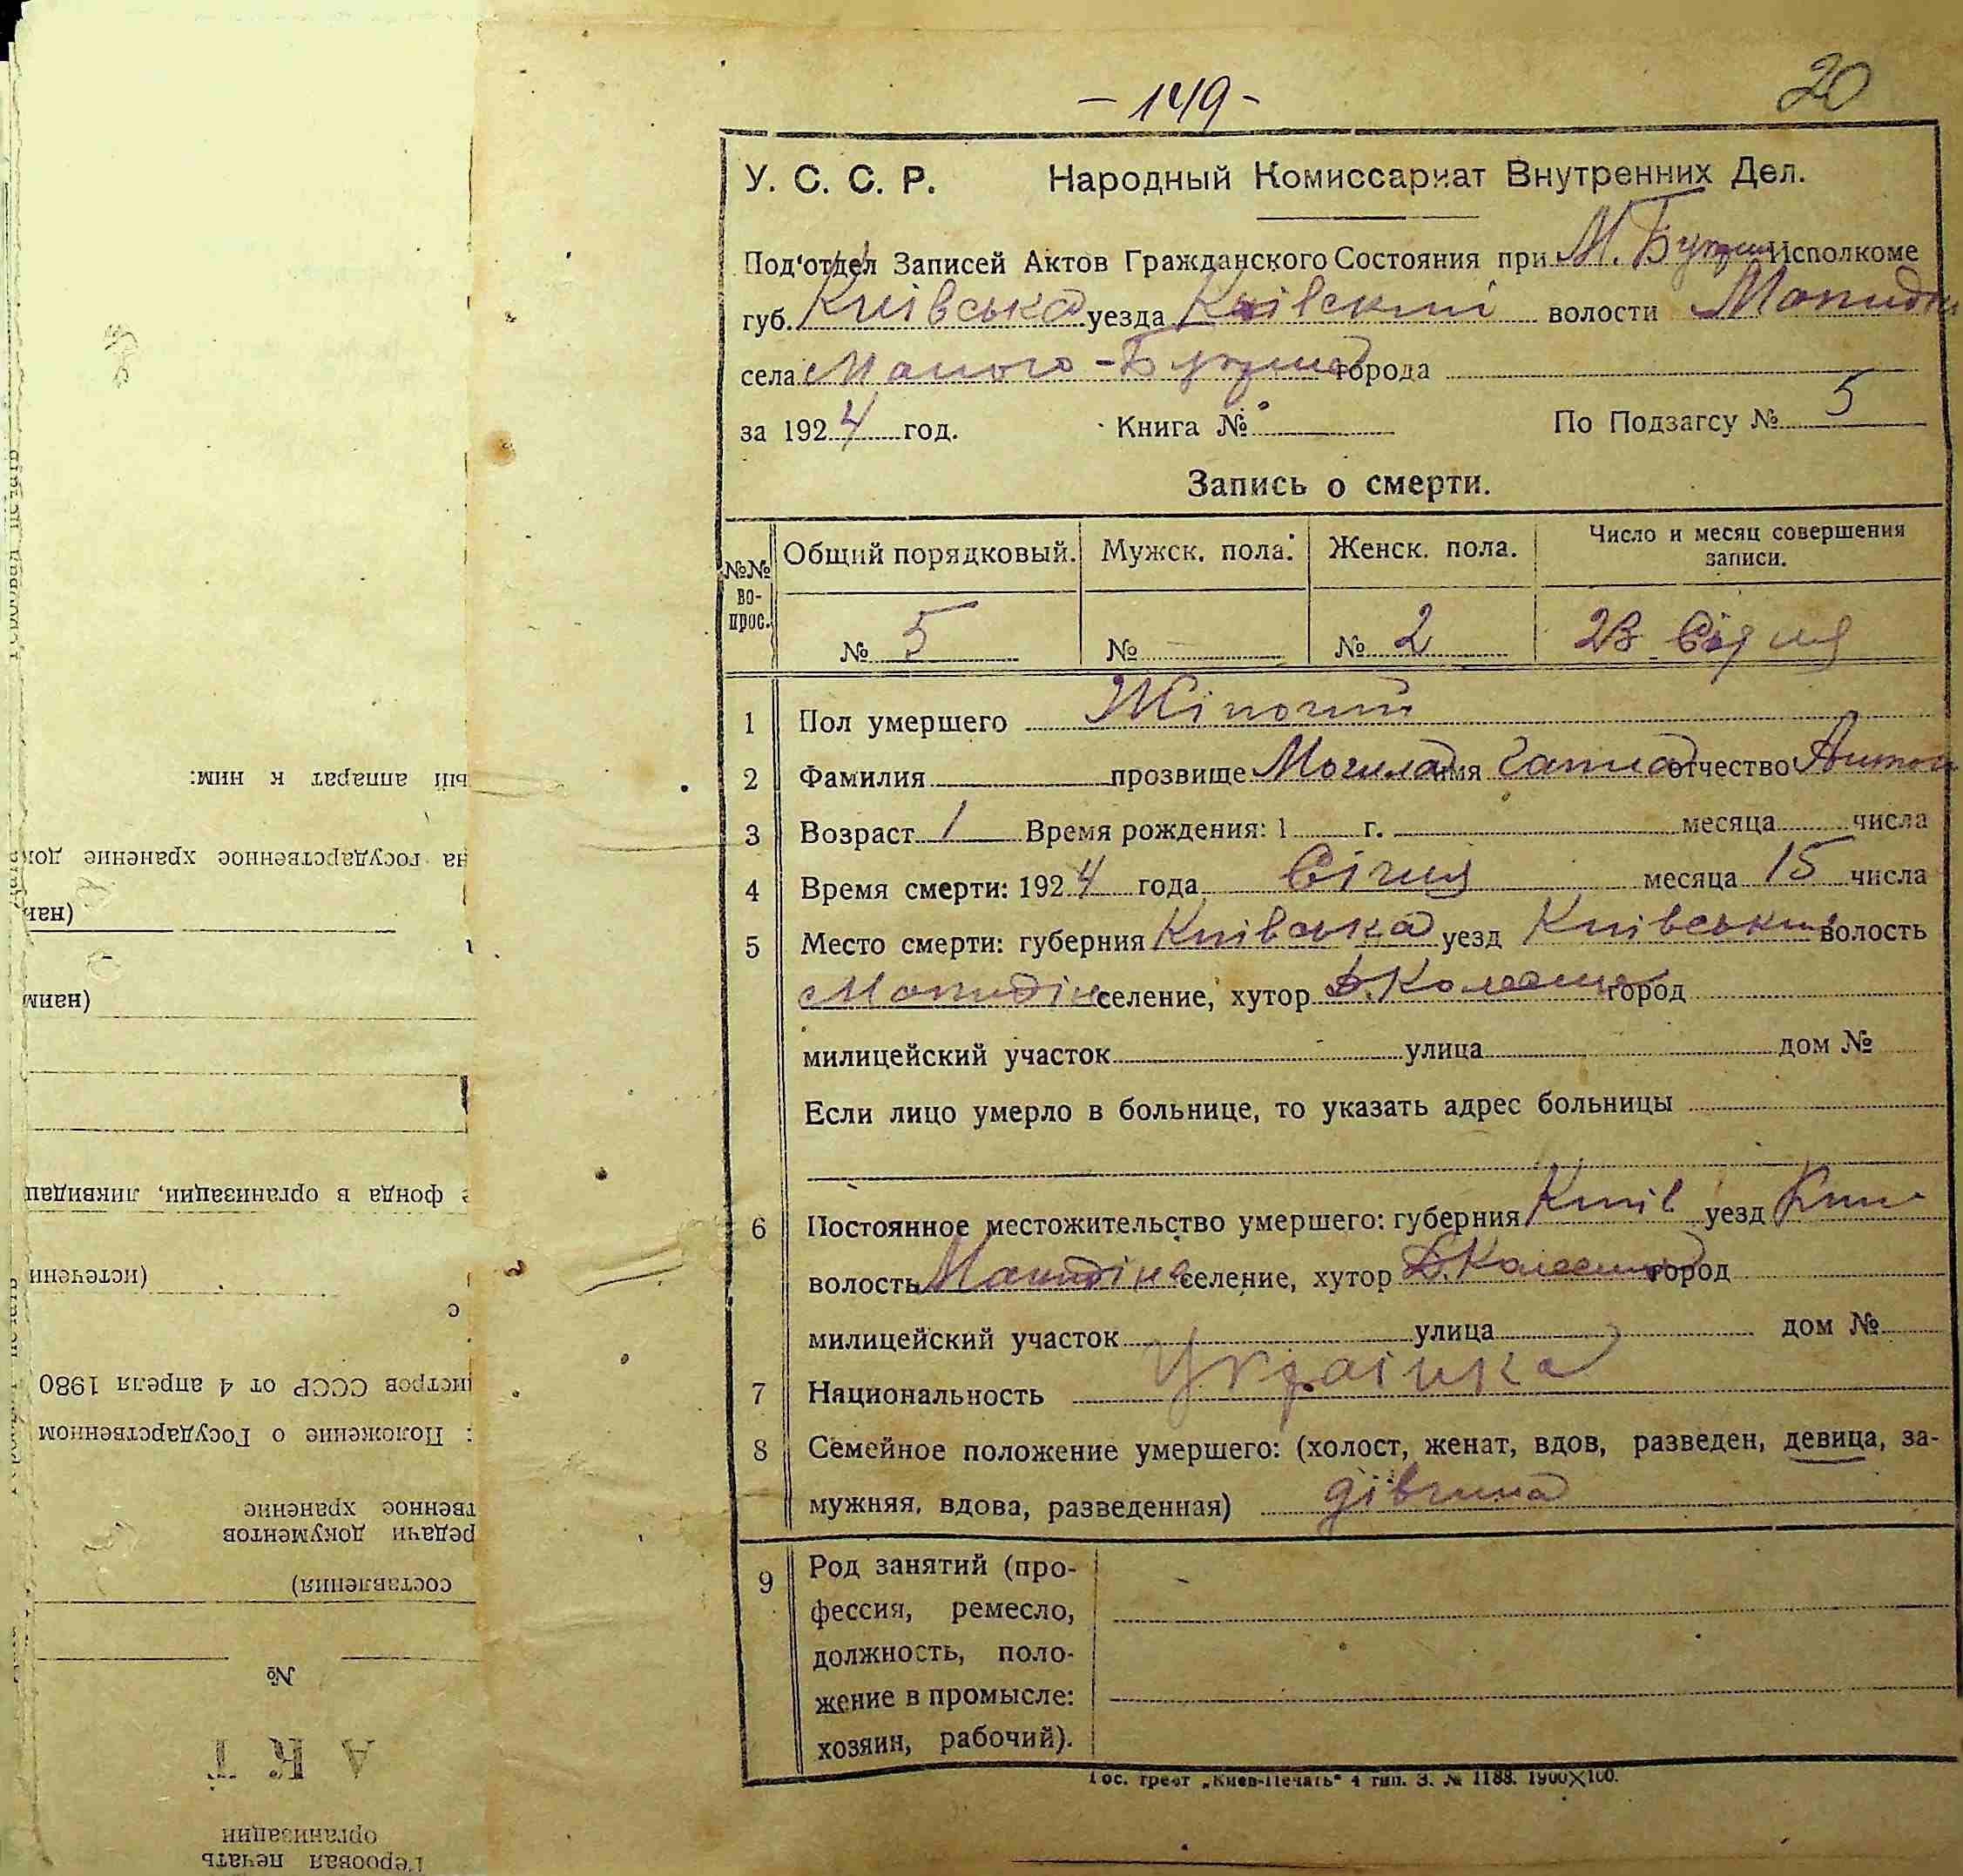 - 149 -
20
У. С. С. Р. Народный Комиссариат Внутренних Дел.
Под'отдел Записей Актов Гражданского Состояния при М. Исполкоме
губ. Київська уезда Київский волости
села Малого- города
за 1924 год. Книга № По Подзагсу № 5
Запись о смерти.
№№ во- прос. Общий порядковый. Мужск. пола. Женск. пола. Число и месяц совершения записи.
№ 5 № № 2 23 Січня
1 Пол умершего Жіночий
2 Фамилия прозвище Могила имя Ганна отчество Антон
3 Возраст 1 Время рождения: 1 г. месяца числа
4 Время смерти: 1924 года Січня месяца 15 числа
5 Место смерти: губерния Київська уезд Київський волость
селение, хутор город
милицейский участок улица дом №
Если лицо умерло в больнице, то указать адрес больницы
6 Постоянное местожительство умершего: губерния Київ уезд Київ
волость селение, хутор город
милицейский участок улица дом №
7 Национальность Українка
8 Семейное положение умершего: (холост, женат, вдов, разведен, девица, за-
мужняя, вдова, разведенная) дівчина
9 Род занятий (про-
фессия, ремесло,
должность, поло-
жение в промысле:
хозяин, рабочий).
Гос. трест „Киев-Печать" 4 тип. З. № 1188. 1900×100.
Гербовая печать
организации
АКТ
№
составления)
редачи документов
твенное хранение
: Положение о Государственном
истров СССР от 4 апреля 1980
с
(истечени
фонда в организации, ликвидац
(наим
(наи
на государственное хранение док
ый аппарат к ним: